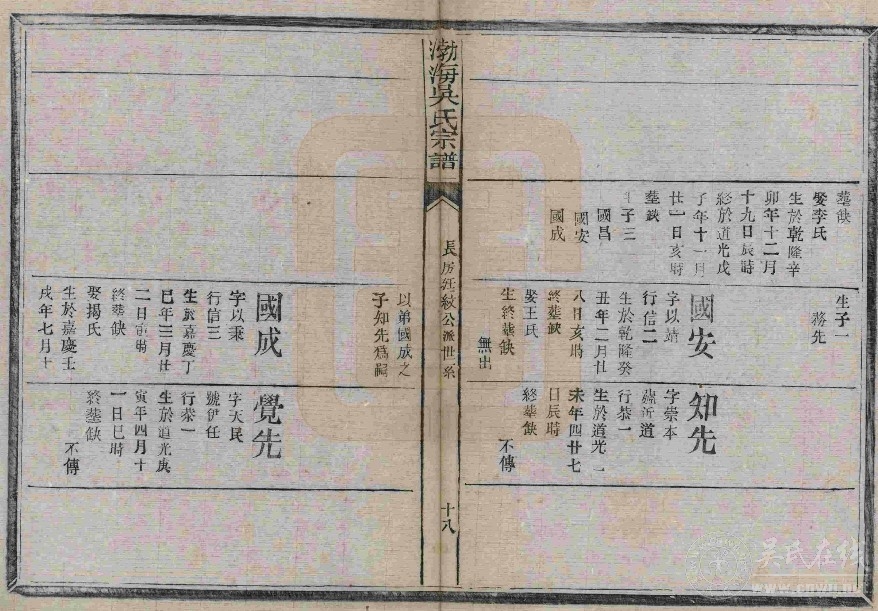 葬缺
娶李氏
生於乾隆辛
卯年十二月
十九日辰時
終於道光戊
子年十一月
廿一日亥時
葬缺
生子三
國昌
國安
國成
生子一
務先
國安
字以靖
行信二
生於乾隆癸
丑年二月廿
八日亥時
終葬缺
娶王氏
生終葬缺
無出
知先
字崇本
行恭一
生於道光
未年四廿七
日辰時
終葬缺
不傳
渤海吳氏宗譜
長房 紋公派世系
十八
以弟國成之
子知先爲嗣
國成
字以秉
行信三
生於嘉慶丁
巳年三月廿
二日寅時
終葬缺
娶揚氏
生於嘉慶壬
戌年七月十
覺先
字天民
號伊任
行恭一
生於道光庚
寅年四月十
一日巳時
終葬缺
不傳
吴氏在线
www.cnwu.net